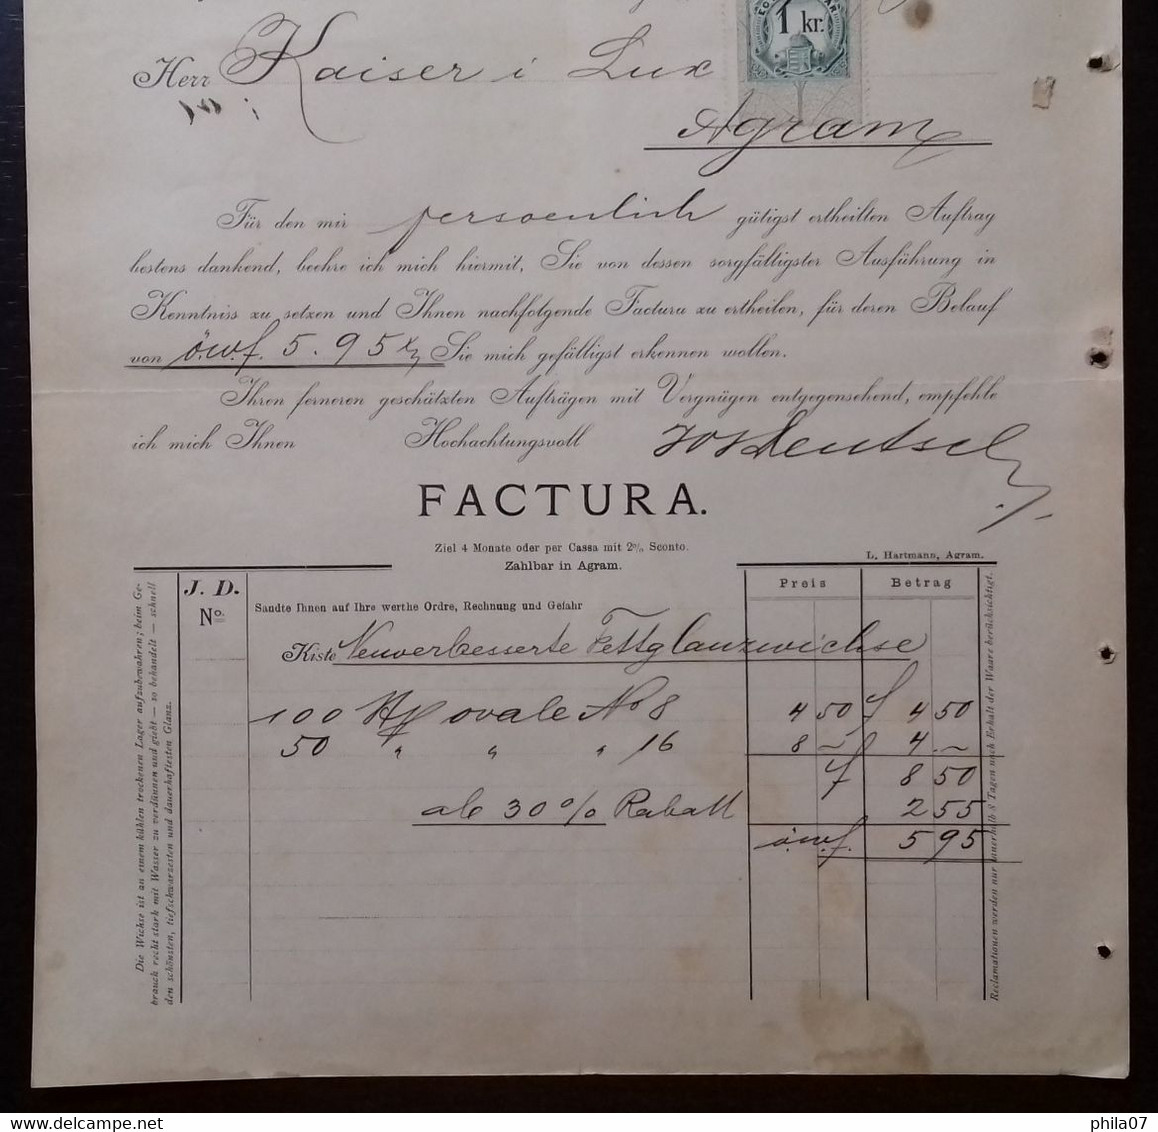 1 kr.
Herr Kaiser i Lux
Agram
Für den mir persoenlich gütigst ertheilten Auftrag
bestens dankend, beehre ich mich hiermit, Sie von dessen sorgfältigster Ausführung in
Kenntniss zu setzen und Ihnen nachfolgende Factura zu ertheilen, für deren Belauf
von ö.w.f. 5.95 x Sie mich gefälligst erkennen wollen.
Ihren ferneren geschätzten Aufträgen mit Vergnügen entgegensehend, empfehle
ich mich Ihnen Hochachtungsvoll Jos Deutsch
FACTURA.
Ziel 4 Monate oder per Cassa mit 2% Sconto.
Zahlbar in Agram.
L. Hartmann, Agram.
J. D.
No.
Sandte Ihnen auf Ihre werthe Ordre, Rechnung und Gefahr
Preis Betrag
Kiste Neuverbesserte Fettglanzwichse
100 ovale No 8 4 50 f 4 50
50 " " " 16 8 ~ f 4 . ~
f 8 50
ab 30% Rabatt 2 55
ö.w.f. 5 95
Die Wichse ist an einem kühlen trockenen Lager aufzubewahren; beim Ge-
brauch recht stark mit Wasser zu verdünnen und giebt — so behandelt — schnell
den schönsten, tiefschwarzesten und dauerhaftesten Glanz.
Reclamationen werden nur innerhalb 8 Tagen nach Erhalt der Waare berücksichtigt.
phila07